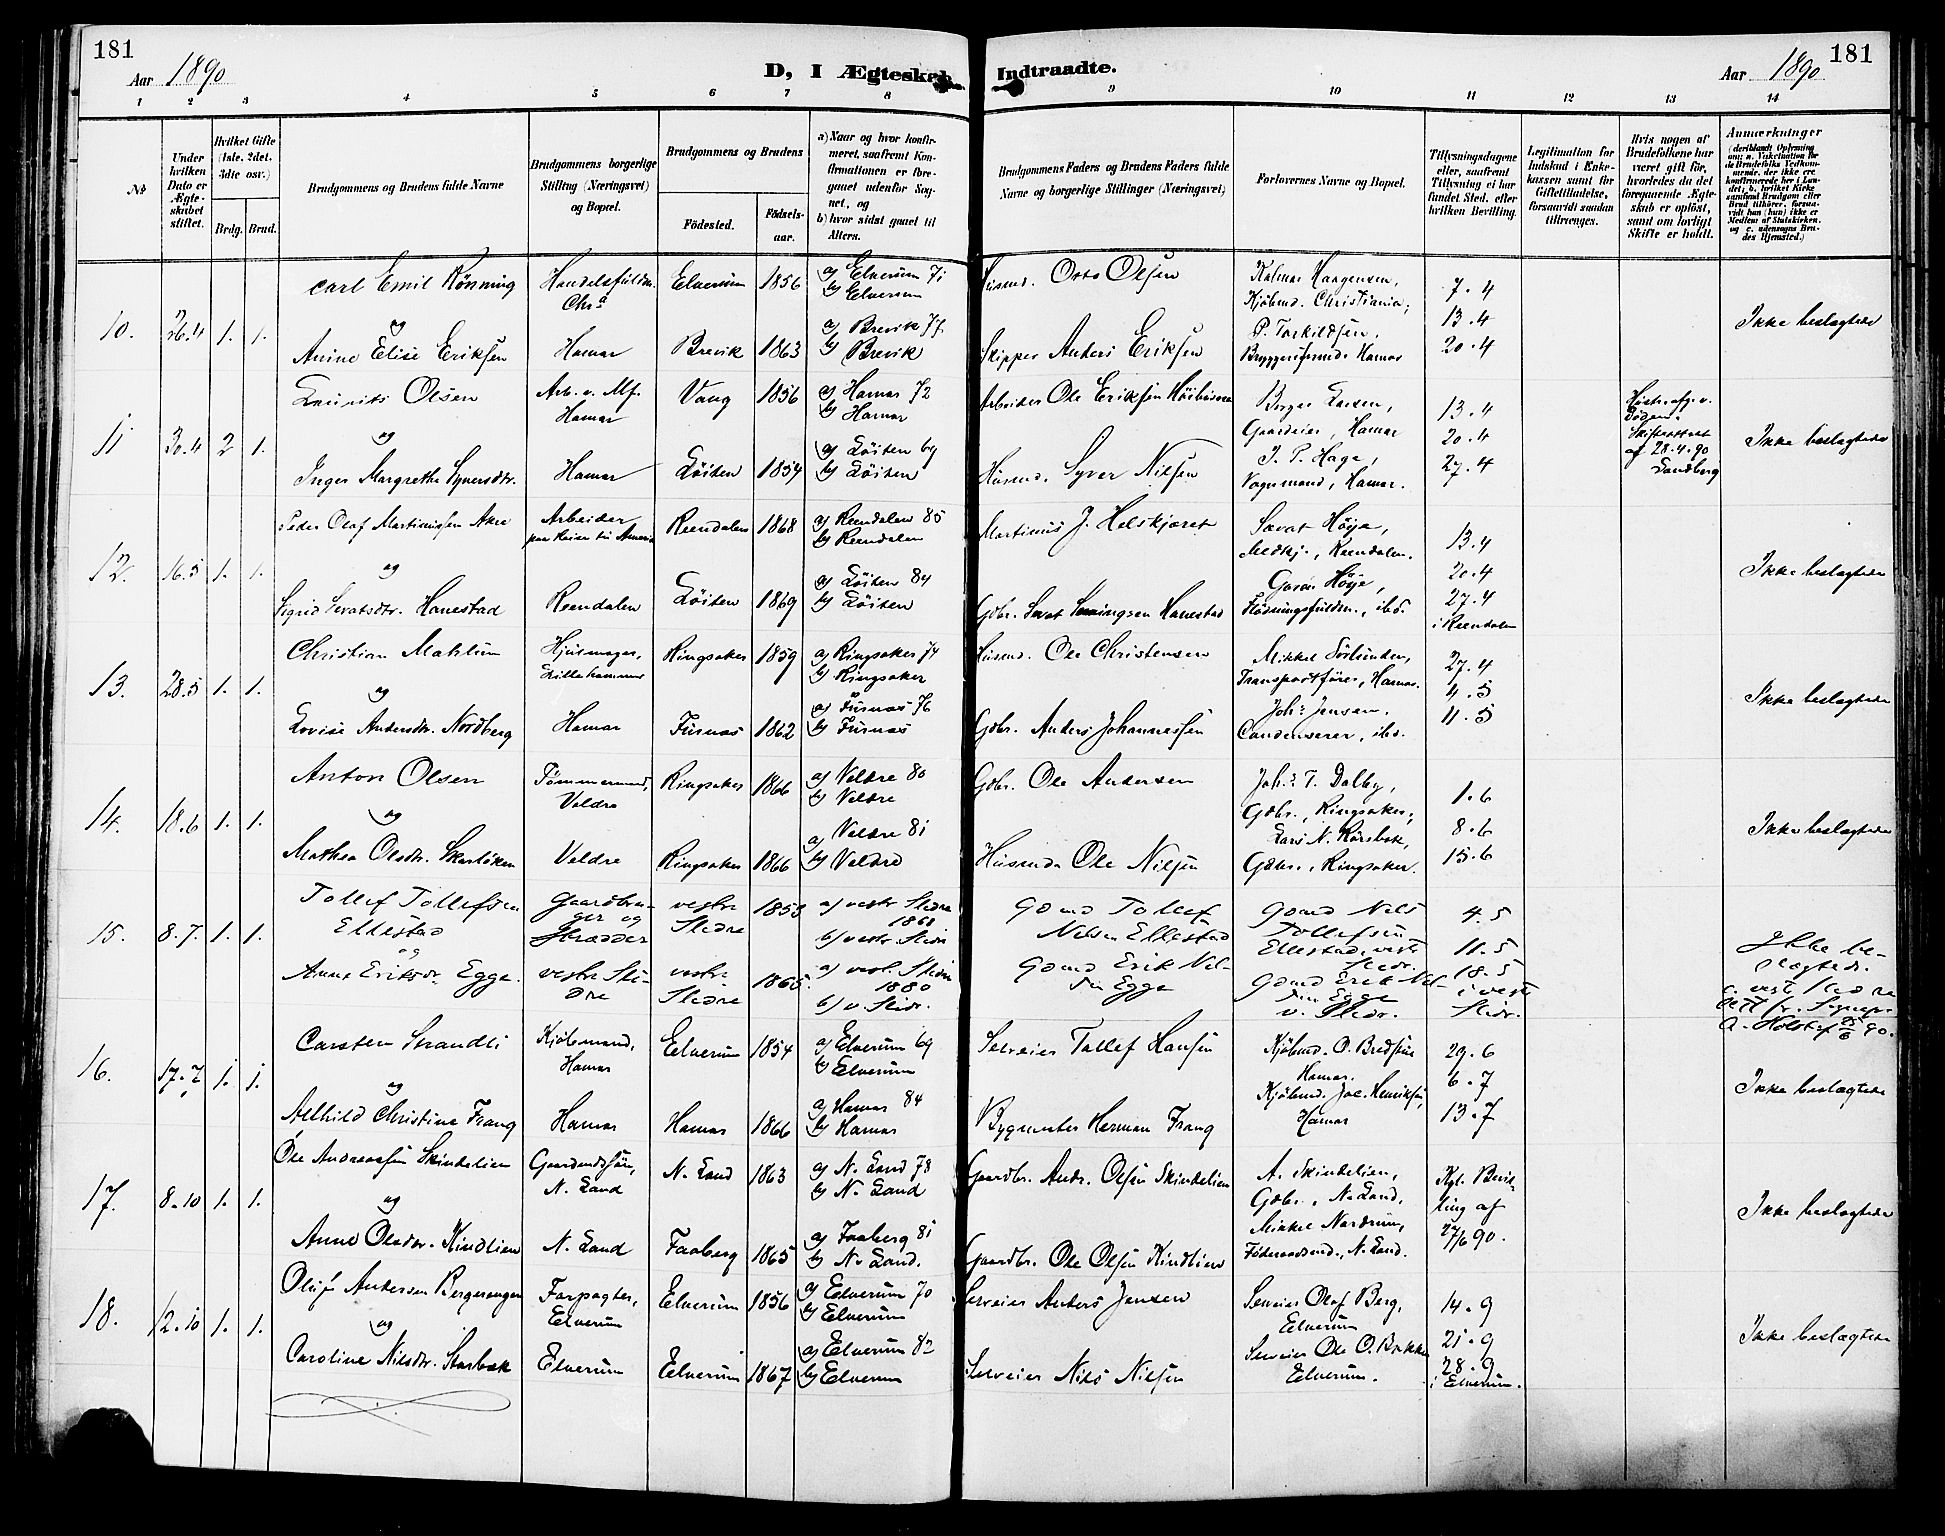 181
Aar 1890
D, I Ægteskab Indtraadte.
Aar 1890
181
1 2 3 4 5 6 7 8 9 10 11 12 13 14
No
Under hvilken Dato er Ægteskabet stiftet.
Hvilket Gifte (1ste. 2det. 3die osv.)
Brdg. Brud.
Brudgommens og Brudens fulde Navne
Brudgommens borgerlige Stilling (Næringsvei) og Bopæl.
Brudgommens og Brudens
Fødested.
Fødselsaar.
a) Naar og hvor konfirmeret, saafremt Konfirmationen er foregaaet udenfor Sognet, og
b) hvor sidst gaaet til Alters.
Brudgommens Faders og Brudens Faders fulde Navne og borgerlige Stillinger (Næringsvei)
Forlovernes Navne og Bopæl.
Tillysningsdagene eller, saafremt Tillysning ei har fundet Sted, efter hvilken Bevilling.
Legitimation for Indskud i Enkekassen samt for Giftetilladelse, forsaavidt saadan tiltrænges.
Hvis nogen af Brudefolkene har været gift før, hvorledes da det foregaaende Ægteskab er opløst, samt om lovligt Skifte er holdt.
Anmærkninger
10. 26.4 1. 1.
Carl Emil Rönning Handelsfuldm. Chra Elverum 1856 a) Elverum 71 b) Elverum
Husmd. Otto Olsen Kalmar Haagensen, Kjöbmd. Christiania; 7.4
og
Anine Elise Eriksen Hamar Brevik 1863 a) Brevik 77 b) Brevik
Skipper Anders Eriksen P. Torkildsen, Bryggerifuldm. Hamar 13.4 20.4 Ikke beslægtede
11 30.4 2 1.
Laurits Olsen Arb. v. Mf. Hamar Vang 1856 a) Hamar 72 b) Hamar
Arbeider Ole Eriksen Berger Larsen, Gaardeier, Hamar 13.4 20.4
og
Inger Margrethe Syversdtr. Hamar Löiten 1854 a) Löiten 69 b) Löiten
Husmd. Syver Nilsen J. P. Hage, Vognmand, Hamar. 27.4
af 28.4.90 Sandberg
Ikke beslægtede
12. 16.5 1. 1.
Peder Olaf Martiniusen Aker Arbeider paa Reise til Amerika Reendalen 1868 a) Reendalen 85 b) Reendalen
Martinus J. Helskjæret Savat Höye, Reendalen. 13.4
og
Sigrid Savatsdtr. Hanestad Reendalen Löiten 1869 a) Löiten 84 b) Löiten
Gdbr. Savat Hanestad Höye, Flödningsfuldm., ibd. 20.4 27.4 i Reendalen
Ikke beslægtede
13. 28.5 1. 1.
Christian Mahlum Hjulmager, Lillehammer Ringsaker 1859 a) Ringsaker 74 b) Ringsaker
Husmd. Ole Christensen Mikkel Sörlunden, Transportförer, Hamar. 27.4 4.5
og
Lovise Andersdtr. Nordberg Hamar Furnæs 1862 a) Furnæs 76 b) Furnæs
Gdbr. Anders Johannessen Johs. Jensen. Condenserer, ibd. 11.5
Ikke beslægtede
14. 18.6 1. 1.
Anton Olsen Tömmermand, Veldre Ringsaker 1866 a) Veldre 80 b) Veldre
Gdbr. Ole Andersen Johs. T. Dalby, Gdbr., Ringsaker; 1.6
og
Mathea Olsdtr. Veldre Ringsaker 1866 a) Veldre 81 b) Veldre
Husmd. Ole Nilsen Lars N. Gdbr., Ringsaker. 8.6 15.6
Ikke beslægtede
15. 8.7. 1. 1.
Tollef Tollefsen Ellestad Gaardbruger og Skrædder vestre Slidre 1853 a) vestr Slidre 1868 b) vestr. Slidr
Gdmd Tollef Nilsen Ellestad Gdmd Nils Tollefsen Ellestad, vestr Slidr. 4.5 11.5
og
Anne Eriksdr. Egge. vestre Slidre vestre Slidre 1865. a) vest. Slidre 1880 b) v. Slidr.
Gdmd Erik Nilsen Egge Gdmd Erik Nilsen Egge v. Slidr. 18.5 i vestr Slidr.
Ikke beslægtedr. c. vest Slidre
16. 17.7 1. 1.
Carsten Strandli Kjöbmand, Hamar Elverum 1854 a) Elverum 69 b) Elverum
Selveier Tollef Hansen Kjöbmd. O. Bredsten Hamar. 29.6 6.7
og
Alhild Christine Frang Hamar Hamar 1866 a) Hamar 84 b) Hamar
Bygmester Herman Frang Kjöbmd. Joc. Henriksen, Hamar 13.7
Ikke beslægtede
17. 8.10 1. 1.
Ole Andreassen Skindelien Gaardmdssön, N. Land N. Land 1863 a) N. Land 78 b) N. Land
Gaardbr. Andr. Olsen Skindelien A. Skindelien, Gdbr., N. Land. Kgl. Bevilling af 27/6 90.
og
Anne Olsdtr. Kindlien N. Land Faaberg 1865 a) Faaberg 81 b) N. Land.
Gaardbr. Ole Olsen Kindlien Mikkel Nordrum, Föderaadsmd., N. Land.
Ikke beslægtede
18. 12.10 1. 1.
Oluf Andersen Bergerengen Forpagter, Elverum Elverum 1856 a) Elverum 70 b) Elverum
Selveier Anders Jensen Selveier Olof Berg, Elverum 14.9
og
Caroline Nilsdtr. Starbæk Elverum Elverum 1867 a) Elverum 82 b) Elverum
Selveier Nils Nilsen Selveier Ole O. Bakke Elverum. 21.9 28.9 i Elverum.
Ikke beslægtede